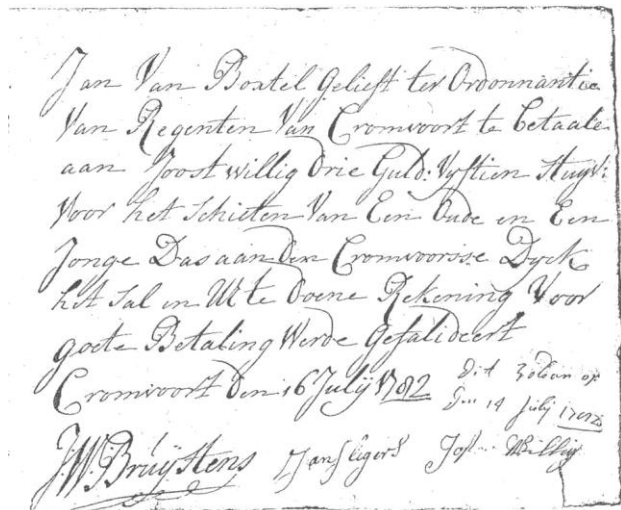 Jan Van Boxtel Gelieft ter Ordonnantie
Van Regenten Van Cromvoort te betaale
aan Joost Willig drie Guld: Vyftien Stuyv:
Voor het Schieten Van Een Oude en Een
Jonge Das aan den Cromvoorsse Dyck
het Sal in U te doene Rekening Voor
goete Betaling Werde Gefalideert
Cromvoort den 16 July 1782
dit op
den 19 July 1782
J:W: Bruystens Jan Segers Jost Willig